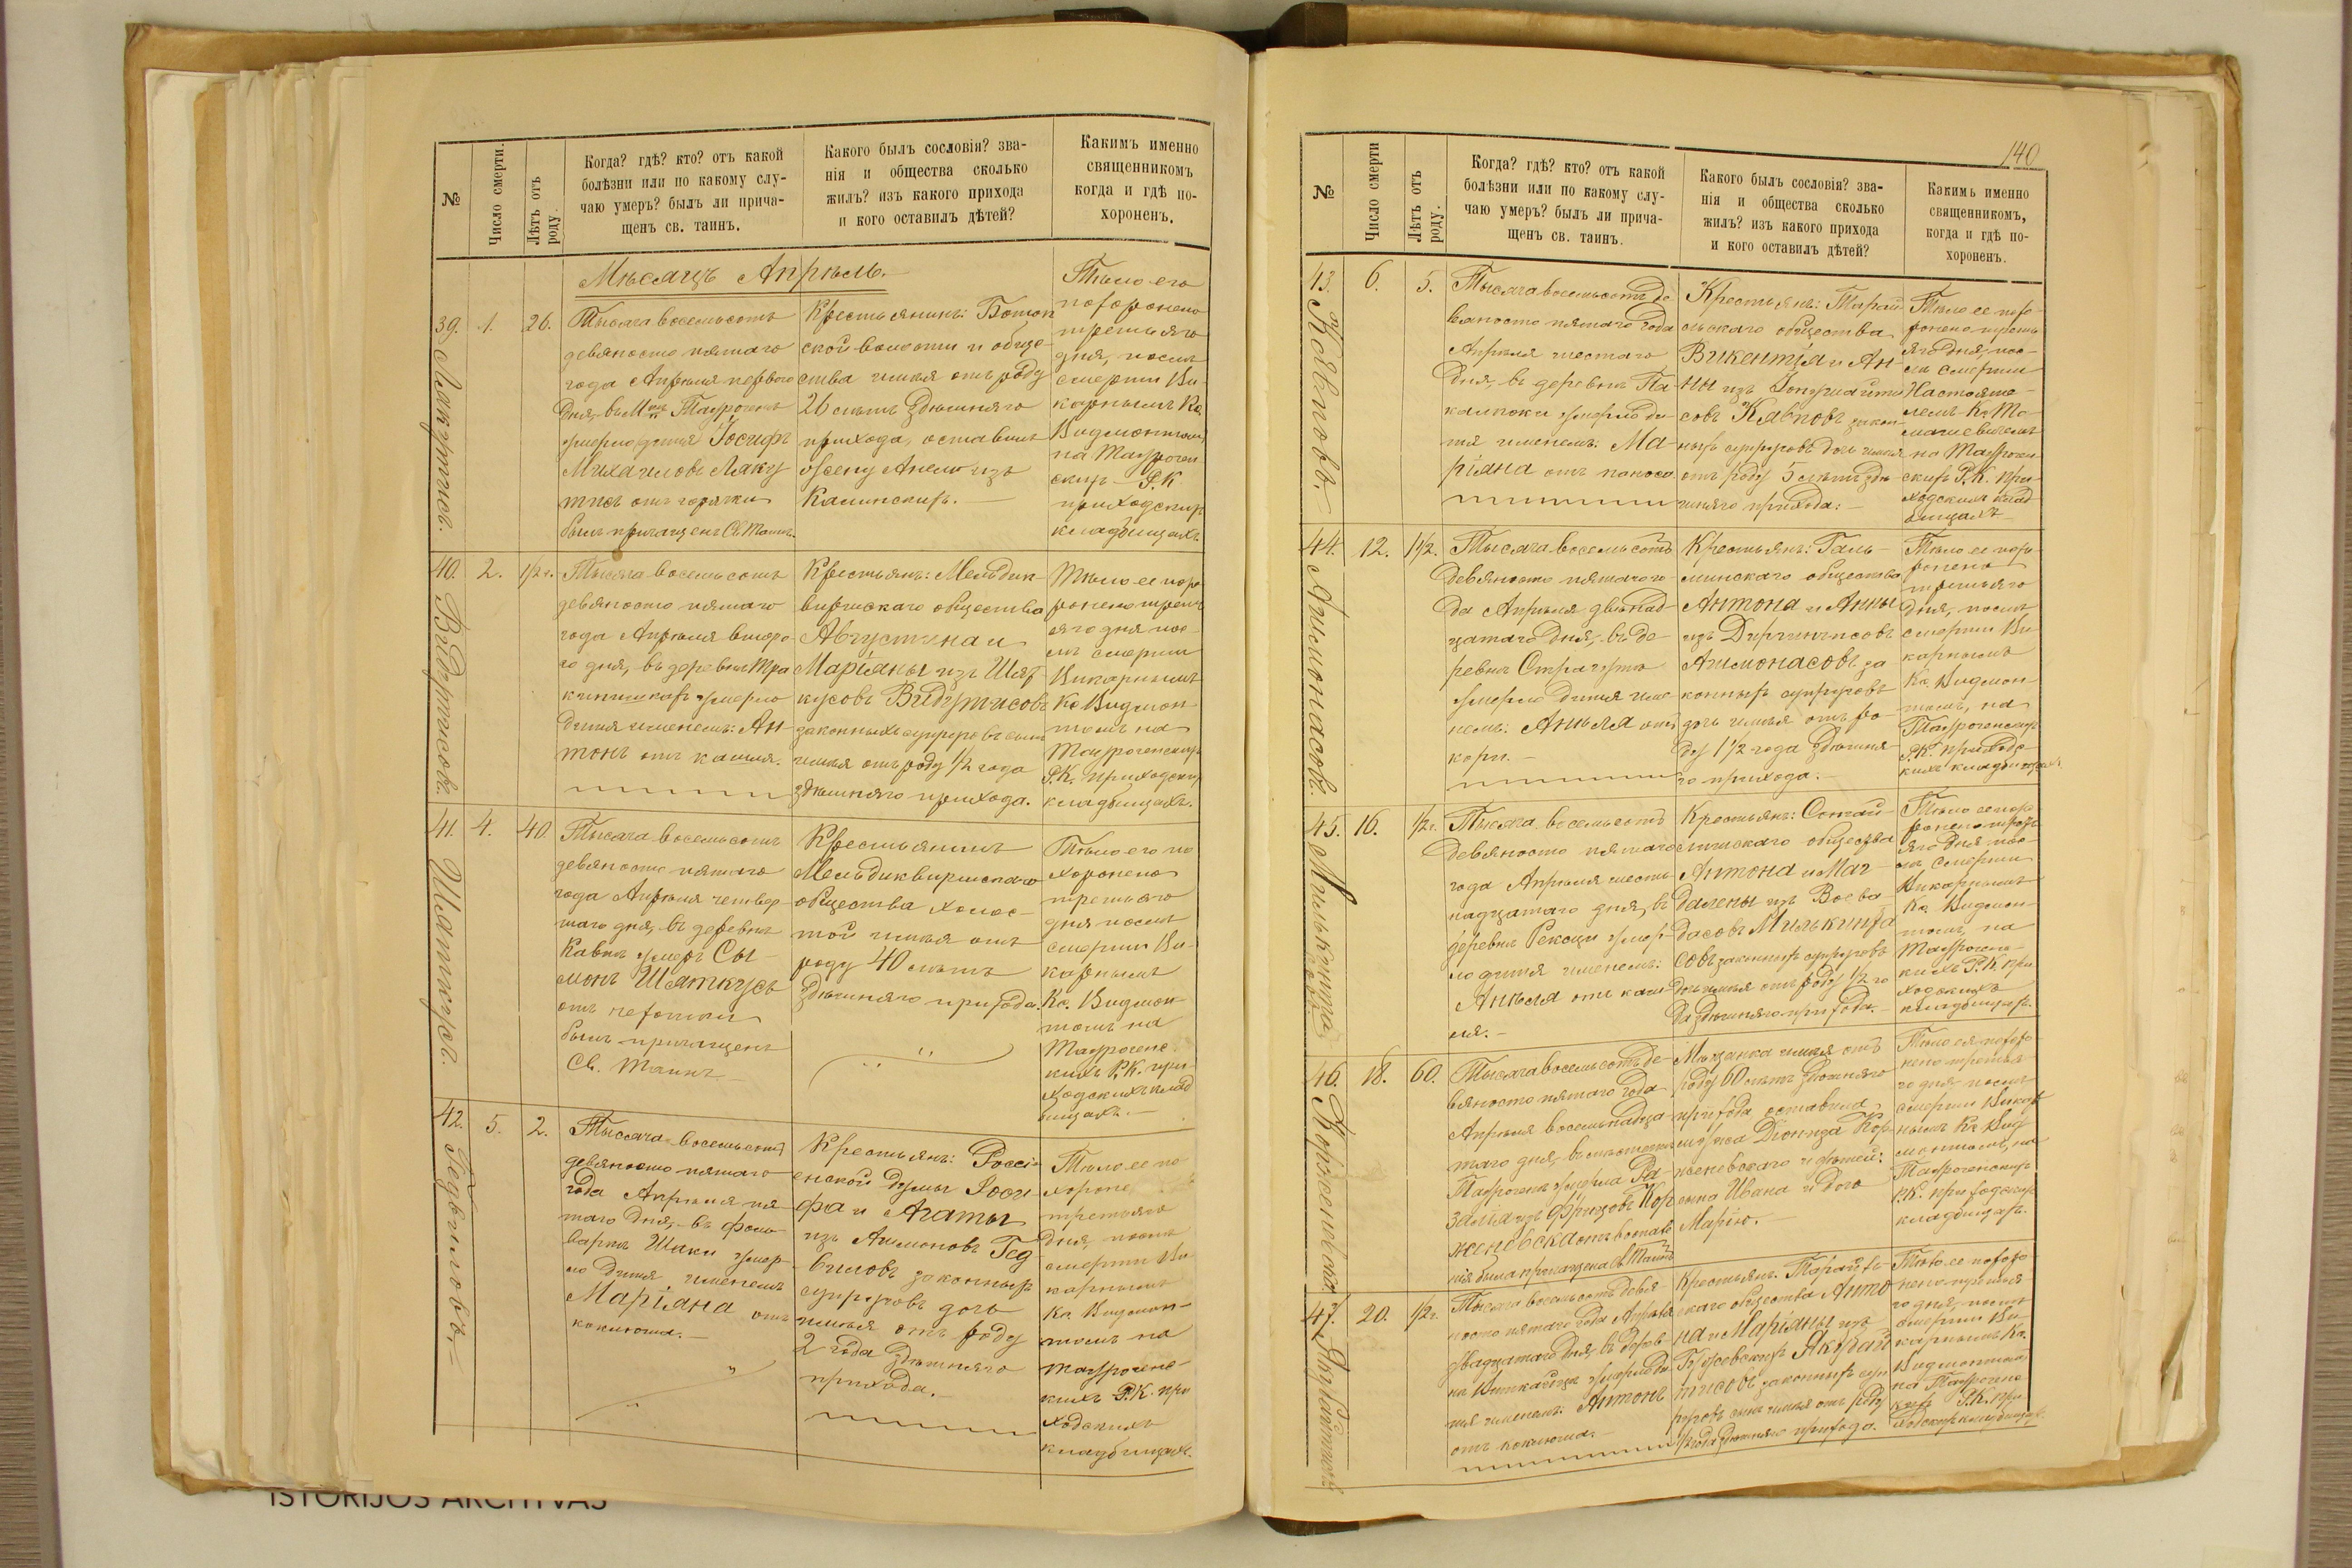 №
Число смерти.
Лѣтъ отъ роду.
Когда? гдѣ? кто? отъ какой
болѣзни или по какому слу-
чаю умеръ? былъ ли прича-
щенъ св. таинъ.
Какого былъ сословія? зва-
нія и общества сколько
жилъ? изъ какого прихода
и кого оставилъ дѣтей?
Какимъ именно
священникомъ
когда и гдѣ по-
хороненъ.
Мѣсяцъ Апрѣль.
39.
1.
26.
Тысяча восемьсотъ
девяносто пятаго
года Апрѣля перваго
дня, въ Таурогенѣ
Іосифъ
Михаиловъ Лаку
тисъ отъ горячки
былъ причащенъ Св. Таинъ.
Крестьянинъ:
ской волости и обще-
ства имѣя отъ роду
26 лѣтъ здѣшняго
прихода, оставилъ
жену Анелю изъ
Калинскихъ.
Тѣло его
похоронено
третьяго
дня, послѣ
смерти Ви-
карнымъ Кс.
Видмонтомъ
на Тауроген-
скихъ Р.К.
приходскихъ
кладбищахъ.
40. Видутисовъ.
2.
1/2 г.
Тысяча восемьсотъ
девяносто пятаго
года Апрѣля второ-
го дня, въ деревнѣ Тра
умерло
дитя именемъ: Ан-
тонъ отъ кашля.
Крестьянъ: Мельдик-
виршскаго общества
Августина и
Маріяны изъ Шят
кусовъ Видутисовъ
законныхъ супруговъ сынъ
имѣя отъ роду 1/2 года
здѣшняго прихода.
Тѣло ее похо
ронено треть
яго дня пос-
лѣ смерти
Викарнымъ
Кс. Видмон-
томъ на
Таурогенскихъ
Р.К. приходскихъ
кладбищахъ.
41. Шяткусъ.
4.
40
Тысяча восемьсотъ
девяносто пятаго
года Апрѣля четвер-
таго дня, въ деревнѣ
умеръ Сы-
монъ Шяткусъ
отъ
былъ причащенъ
Св. Таинъ.
Крестьянинъ
Мельдиквиршскаго
общества холос-
той имѣя отъ
роду 40 лѣтъ
здѣшняго прихода.
Тѣло его по
хоронено
третьяго
дня послѣ
смерти Ви-
карнымъ
Кс. Видмон-
томъ на
Таурогенс-
кихъ Р.К. при-
ходскихъ клад
бищахъ.
42. Гедвиловъ.
5.
2.
Тысяча восемьсотъ
девяносто пятаго
года Апрѣля пя-
таго дня, въ фоль-
варкѣ Шаки умер-
ло дитя именемъ
Маріяна отъ
коклюша.
Крестьянъ: Россі-
енской думы Іоси-
фа и Агаты
изъ Анмоновъ Гед
виловъ законныхъ
супруговъ дочь
имѣя отъ роду
2 года здѣшняго
прихода.
Тѣло ее по-
хороне
третьяго
дня, послѣ
смерти Ви-
карнымъ
Кс. Видмон-
томъ на
Таурогенс-
кихъ Р.К. при
ходскихъ
кладбищахъ.
140
№
Число смерти
Лѣтъ отъ роду.
Когда? гдѣ? кто? отъ какой
болѣзни или по какому слу-
чаю умеръ? былъ ли прича-
щенъ св. таинъ.
Какого былъ сословія? зва-
нія и общества сколько
жилъ? изъ какого прихода
и кого оставилъ дѣтей?
Какимъ именно
священникомъ,
когда и гдѣ по-
хороненъ.
43. Кявповъ.
6.
5.
Тысяча восемьсотъ де
вяносто пятаго года
Апрѣля шестаго
дня, въ деревнѣ Па-
калпоки умерло ди-
тя именемъ: Ма-
ріяна отъ поноса.
Крестьянъ: Тарай
скаго общества
Викентія и Ан-
ны изъ
совъ Кявповъ закон-
ныхъ супруговъ дочь имѣя
отъ роду 5 лѣтъ здѣ-
шняго прихода.
Тѣло ее похо-
ронено треть
яго дня, пос-
лѣ смерти
Настояте-
лемъ Кс. То-
машевичемъ
на Таурогенскихъ Р.К. при-
ходскихъ клад
бищахъ
44. Анмонасовъ.
12.
1 1/2.
Тысяча восемьсотъ
девяносто пятаго го-
да Апрѣля двѣнад-
цатаго дня, въ де-
ревнѣ
умерло дитя име
немъ: Анеля отъ
кори.
Крестьянъ: Галь-
минскаго общества
Антона и Анны
изъ Диргинчисовъ
Анмонасовъ за
конныхъ супруговъ
дочь имѣя отъ ро-
ду 1 1/2 года здѣшня-
го прихода.
Тѣло ее похо-
ронено
третьяго
дня, послѣ
смерти Ви
карнымъ
Кс. Видмон
томъ, на
Таурогенскихъ
Р.К. приходс-
кихъ кладбищахъ
45.
16.
1/2 г.
Тысяча восемьсотъ
девяносто пятаго
года Апрѣля шест-
надцатаго дня, въ
деревнѣ умер-
ло дитя именемъ:
Анеля отъ каш
ля.
Крестьянъ:
общества
Антона и Маг-
далены изъ Воева
дасовъ Милькинта
совъ законныхъ супруговъ
дочь имѣя отъ роду 1/2 го
да здѣшняго прихода.
Тѣло ее похо
ронено треть
яго дня пос-
лѣ смерти
Викарнымъ
Кс. Видмон-
томъ, на
Таурогенс-
кихъ Р.К. при
ходскихъ
кладбищахъ.
46. Корженевская.
18.
60.
Тысяча восемьсотъ де-
вяносто пятаго года
Апрѣля восемьнадца-
таго дня, въ мѣстечкѣ
Таурогенѣ умерла Ро-
залія изъ Фрицовъ Кор
женевская
была причащена Св. Таинъ
Мѣщанка имѣя отъ
роду 60 лѣтъ здѣшняго
прихода оставила
мужа Діонида Кор-
женевскаго и дѣтей:
сына Ивана и дочь
Марію.
Тѣло ея похоро
нено третья
го дня послѣ
смерти Викар
нымъ Кс. Вид
монтомъ, на
Таурогенскихъ
Р.К. приходскихъ
кладбищахъ.
47.
20.
1/2 г.
Тысяча восемьсотъ девя
носто пятаго года Апрѣля
двадцатаго дня, въ дерев-
нѣ умерло ди
тя именемъ: Антонъ
отъ коклюша.
Крестьянъ:
скаго общества Анто
на и Маріяны изъ
законныхъ суп
руговъ сынъ имѣя отъ роду
1/2 года здѣшняго прихода.
Тѣло ее похоро
нено третья
го дня, послѣ
смерти Ви-
карнымъ Кс.
Видмонтомъ
на Таурогенс
кихъ Р.К. при
ходскихъ кладбищахъ.
ISTORIJOS ARCHYVAS